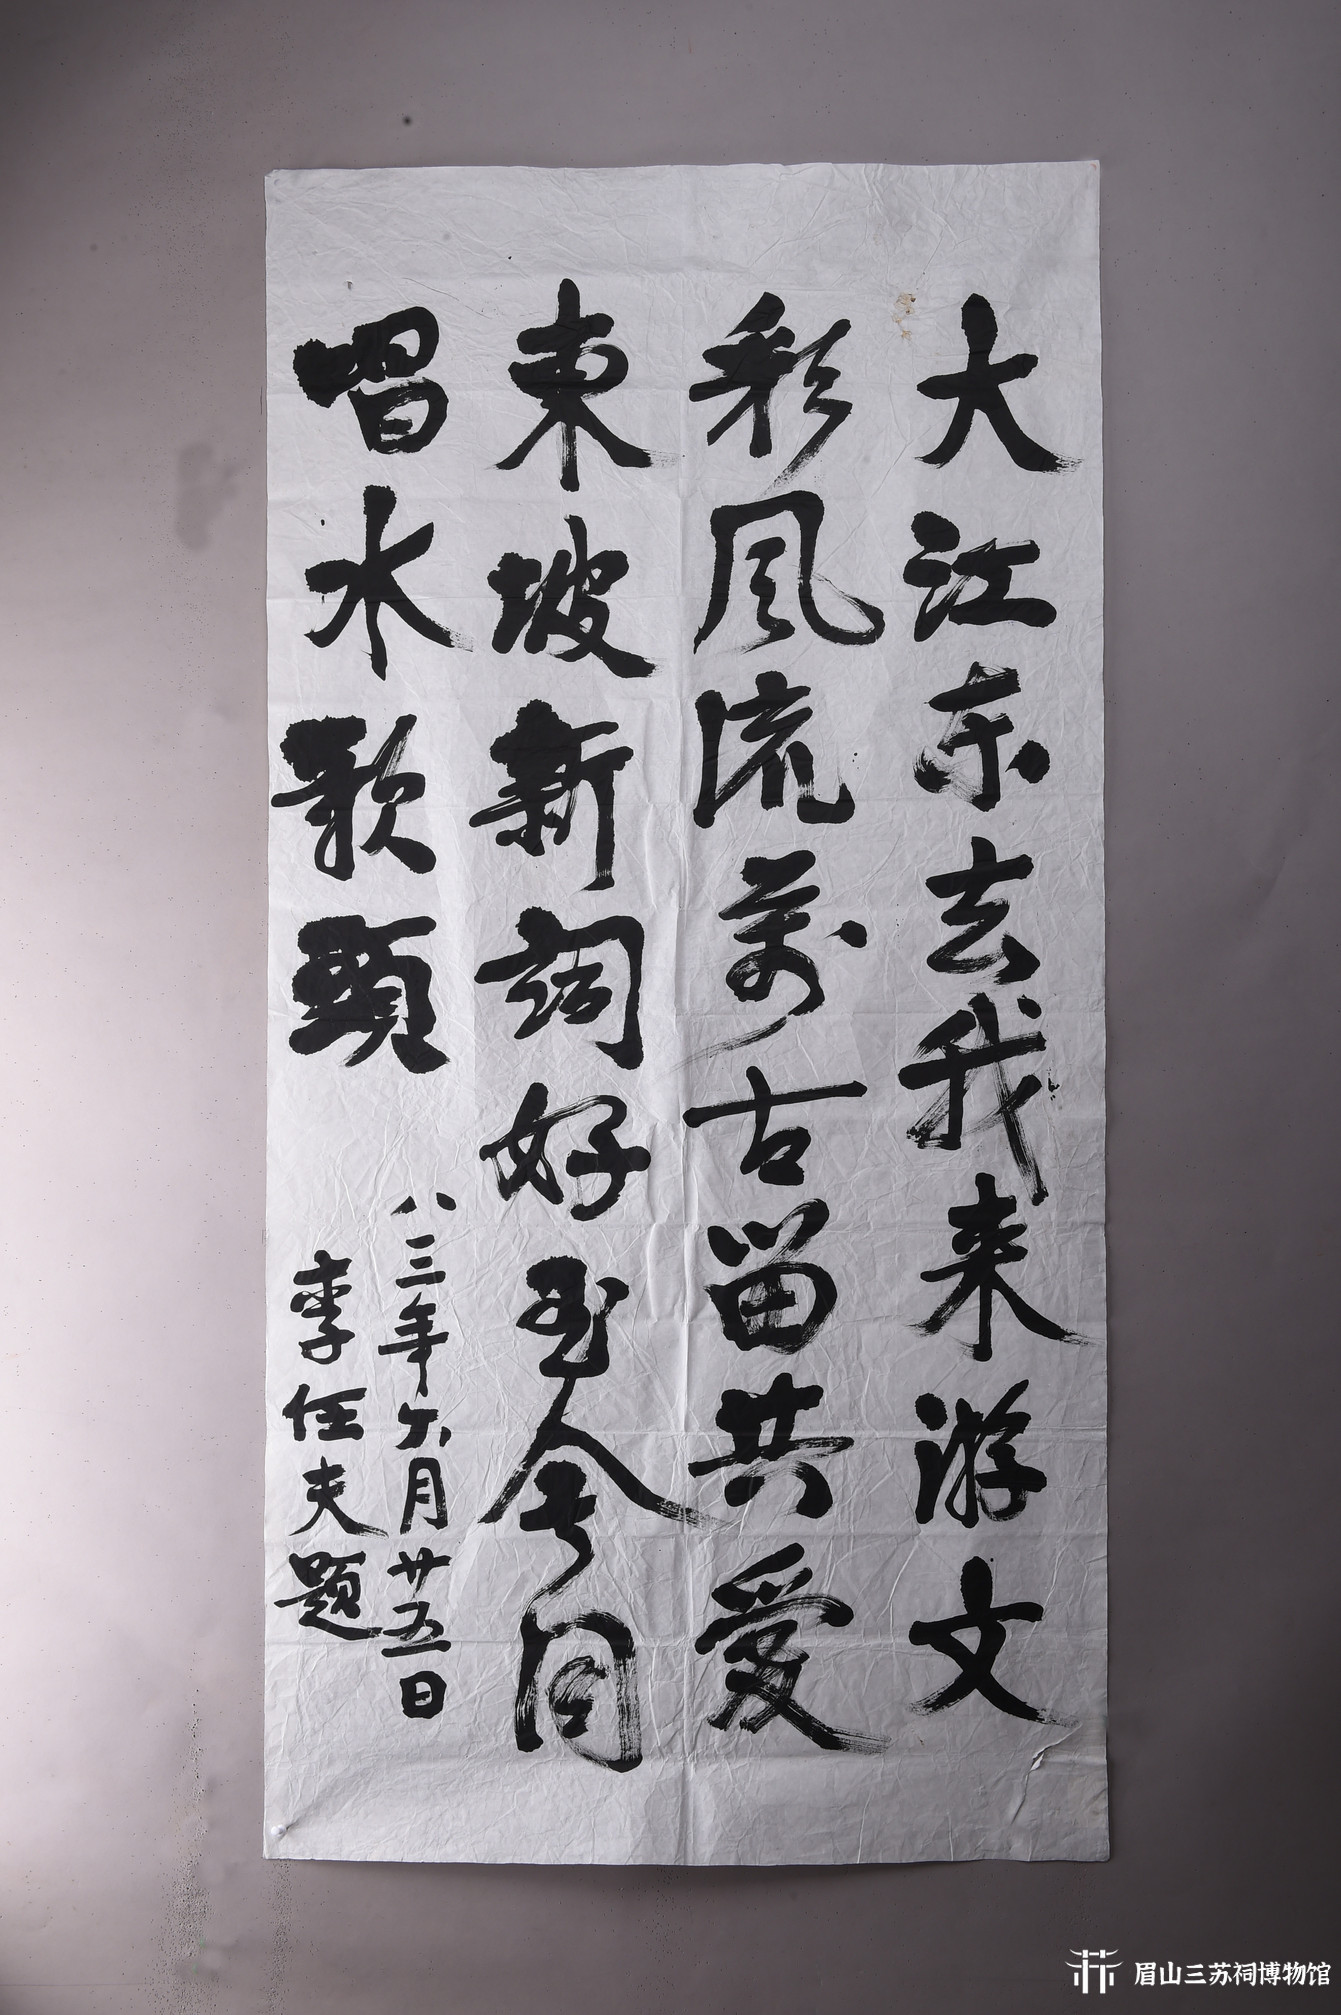 大江东去我来游文
彩风流万古留共爱
東坡新词好至今同
唱水歌頭
八三年六月廿五日
李任夫题
眉山三苏祠博物馆